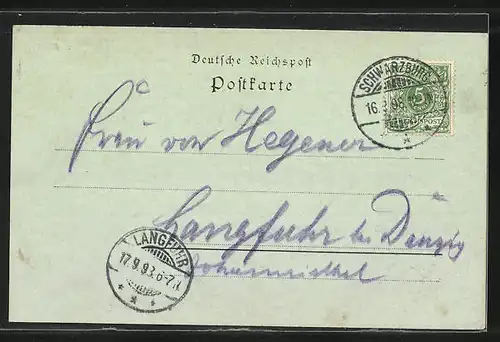 Deutsche Reichspost
Postkarte
SCHWARZBURG
16.9.98
5
Frau von Hegener
Langfuhr bei Danzig
LANGFUHR
17.9.98.6-7.N.